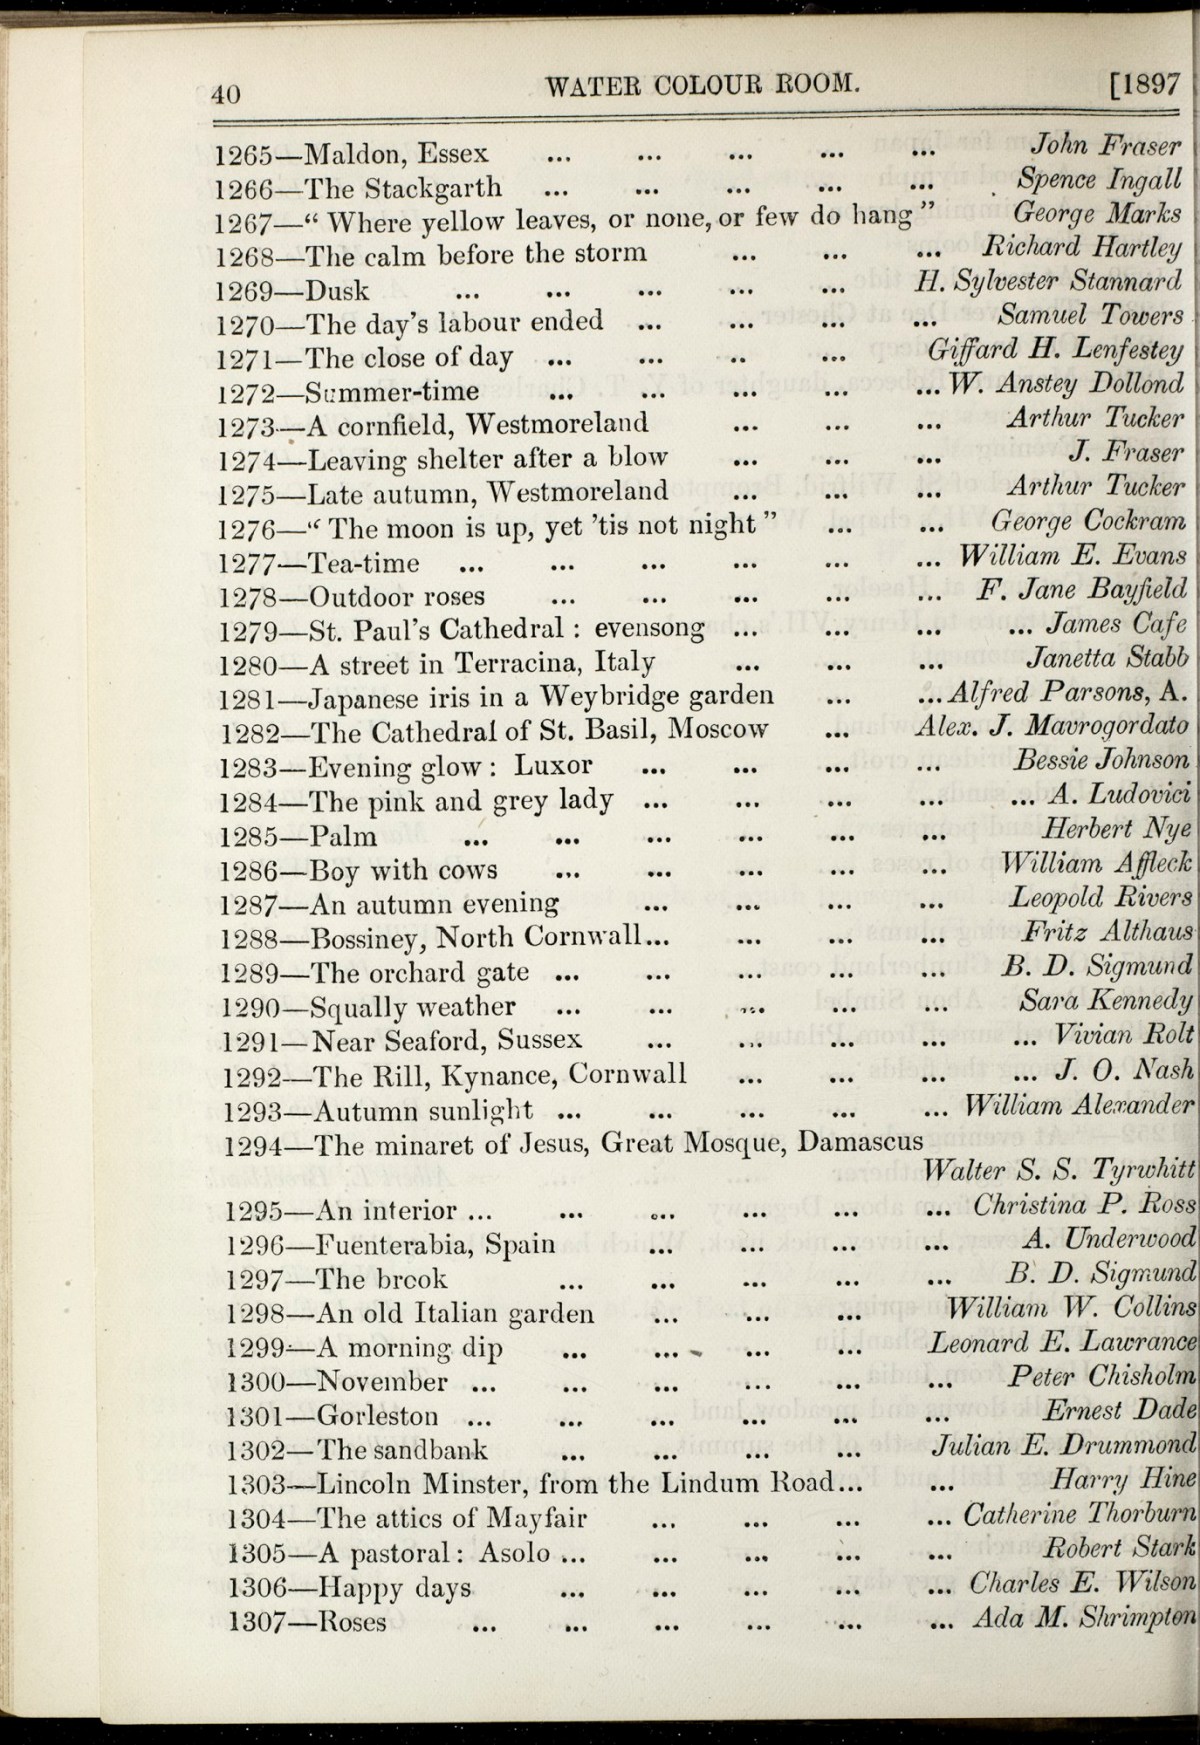 40 WATER COLOUR ROOM. [1897
1265—Maldon, Essex ... ... ... ... ... John Fraser
1266—The Stackgarth ... ... ... ... ... Spence Ingall
1267—“ Where yellow leaves, or none, or few do hang ” George Marks
1268—The calm before the storm ... ... ... Richard Hartley
1269—Dusk ... ... ... ... ... H. Sylvester Stannard
1270—The day’s labour ended ... ... ... ... Samuel Towers
1271—The close of day ... ... .. ... Giffard H. Lenfestey
1272—Summer-time ... ... ... ... ... W. Anstey Dollond
1273—A cornfield, Westmoreland ... ... ... Arthur Tucker
1274—Leaving shelter after a blow ... ... ... J. Fraser
1275—Late autumn, Westmoreland ... ... ... Arthur Tucker
1276—“ The moon is up, yet ’tis not night ” ... ... George Cockram
1277—Tea-time ... ... ... ... ... ... William E. Evans
1278—Outdoor roses ... ... ... ... ... F. Jane Bayfield
1279—St. Paul’s Cathedral : evensong ... ... ... ... James Cafe
1280—A street in Terracina, Italy ... ... ... Janetta Stabb
1281—Japanese iris in a Weybridge garden ... ... Alfred Parsons, A.
1282—The Cathedral of St. Basil, Moscow ... Alex. J. Mavrogordato
1283—Evening glow : Luxor ... ... ... ... Bessie Johnson
1284—The pink and grey lady ... ... ... ... ... A. Ludovici
1285—Palm ... ... ... ... ... ... Herbert Nye
1286—Boy with cows ... ... ... ... ... William Affleck
1287—An autumn evening ... ... ... ... Leopold Rivers
1288—Bossiney, North Cornwall... ... ... ... Fritz Althaus
1289—The orchard gate ... ... ... ... ... B. D. Sigmund
1290—Squally weather ... ... ... ... ... Sara Kennedy
1291—Near Seaford, Sussex ... ... ... ... ... Vivian Rolt
1292—The Rill, Kynance, Cornwall ... ... ... ... J. O. Nash
1293—Autumn sunlight ... ... ... ... ... William Alexander
1294—The minaret of Jesus, Great Mosque, Damascus
Walter S. S. Tyrwhitt
1295—An interior ... ... ... ... ... ... Christina P. Ross
1296—Fuenterabia, Spain ... ... ... ... A. Underwood
1297—The brook ... ... ... ... ... B. D. Sigmund
1298—An old Italian garden ... ... ... William W. Collins
1299—A morning dip ... ... ... ... Leonard E. Lawrance
1300—November ... ... ... ... ... ... Peter Chisholm
1301—Gorleston ... ... ... ... ... ... Ernest Dade
1302—The sandbank ... ... ... ... Julian E. Drummond
1303—Lincoln Minster, from the Lindum Road... ... Harry Hine
1304—The attics of Mayfair ... ... ... ... Catherine Thorburn
1305—A pastoral : Asolo ... ... ... ... ... Robert Stark
1306—Happy days ... ... ... ... ... Charles E. Wilson
1307—Roses ... ... ... ... ... ... Ada M. Shrimpton